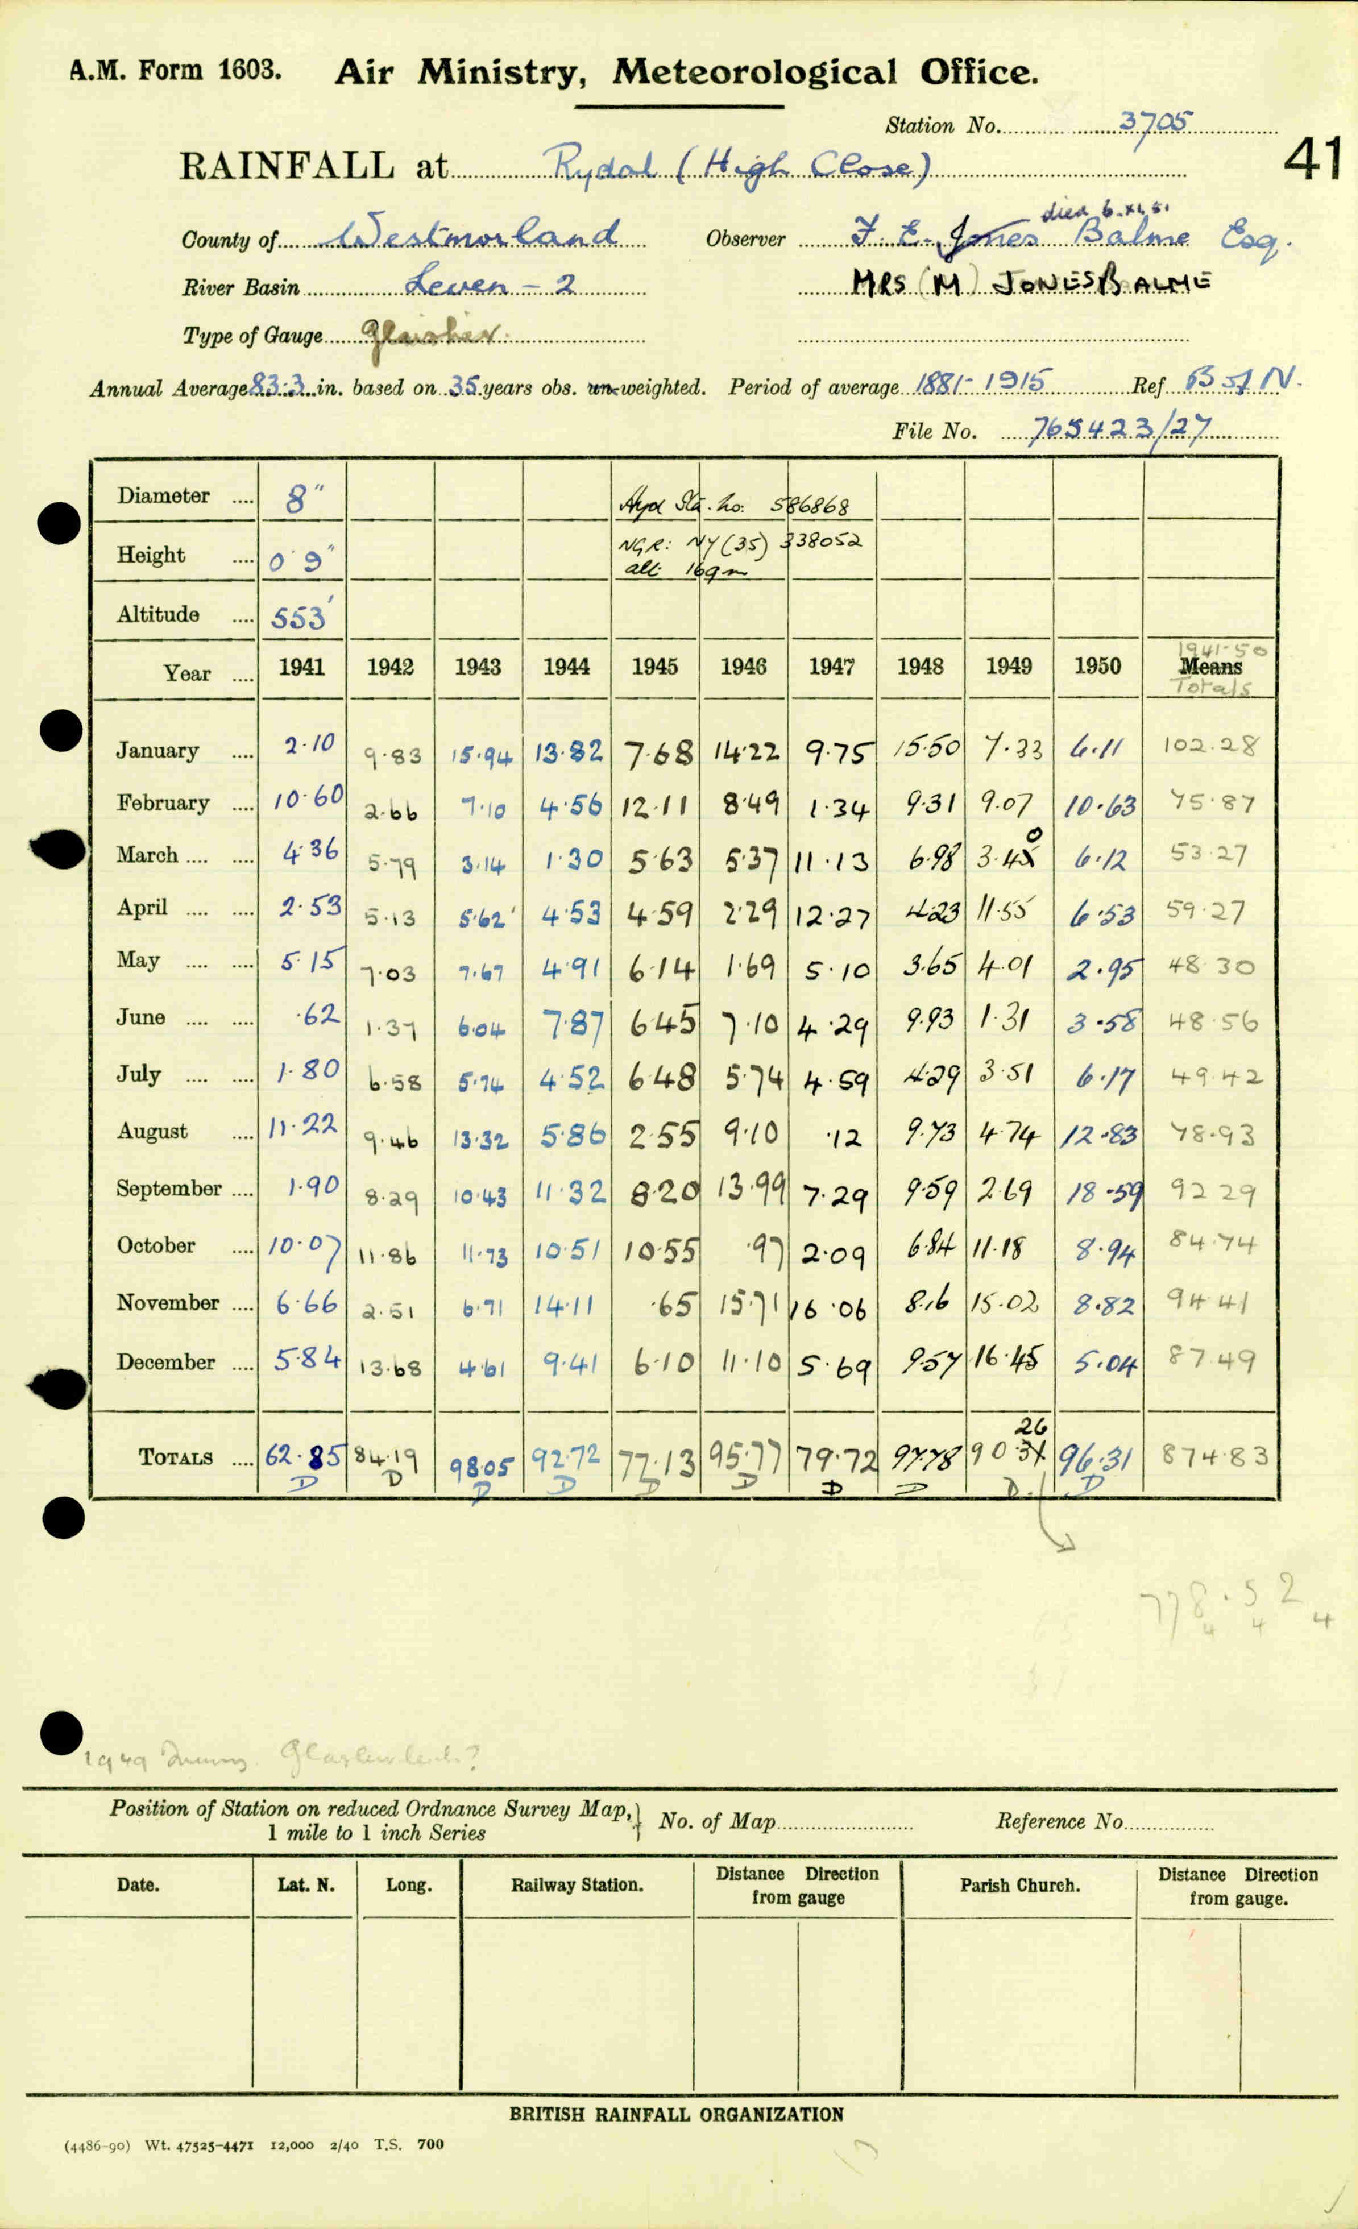 A.M. Form 1603. Air Ministry, Meteorological Office.
Station No. 3705
41
RAINFALL at Rydal (High Close)
died 6.XI.51
County of Westmorland Observer F. E. Jones Balme Esq.
River Basin Leven - 2 MRS (M) JONES BALME
Type of Gauge Glaisher.
Annual Average 83.3 in. based on 35 years obs. un-weighted. Period of average 1881-1915 Ref B of N.
File No. 765423/27
Diameter .... 8" Hyd Sta. no: 586868
Height .... 0' 9" NGR: NY (35) 338052
alt 169m
Altitude .... 553'
1941-50
Year .... 1941 1942 1943 1944 1945 1946 1947 1948 1949 1950 Means
Totals
January .... 2.10 9.83 15.94 13.82 7.68 14.22 9.75 15.50 7.33 6.11 102.28
February .... 10.60 2.66 7.10 4.56 12.11 8.49 1.34 9.31 9.07 10.63 75.87
March .... .... 4.36 5.79 3.14 1.30 5.63 5.37 11.13 6.98 3.40 6.12 53.27
April .... .... 2.53 5.13 5.62 4.53 4.59 2.29 12.27 4.23 11.55 6.53 59.27
May .... .... 5.15 7.03 7.67 4.91 6.14 1.69 5.10 3.65 4.01 2.95 48.30
June .... .... .62 1.37 6.04 7.87 6.45 7.10 4.29 9.93 1.31 3.58 48.56
July .... .... 1.80 6.58 5.74 4.52 6.48 5.74 4.59 4.29 3.51 6.17 49.42
August .... 11.22 9.46 13.32 5.86 2.55 9.10 .12 9.73 4.74 12.83 78.93
September .... 1.90 8.29 10.43 11.32 8.20 13.99 7.29 9.59 2.69 18.59 92.29
October .... 10.07 11.86 11.73 10.51 10.55 .97 2.09 6.84 11.18 8.94 84.74
November .... 6.66 2.51 6.71 14.11 .65 15.71 16.06 8.16 15.02 8.82 94.41
December .... 5.84 13.68 4.61 9.41 6.10 11.10 5.69 9.57 16.45 5.04 87.49
26
TOTALS .... 62.85 84.19 98.05 92.72 77.13 95.77 79.72 97.78 90.31 96.31 874.83
D D D D D D D D D D
778.52
4 4 4
1949
Position of Station on reduced Ordnance Survey Map, } No. of Map Reference No
1 mile to 1 inch Series
Date. Lat. N. Long. Railway Station. Distance Direction from gauge Parish Church. Distance Direction from gauge.
BRITISH RAINFALL ORGANIZATION
(4486-90) Wt. 47525-4471 12,000 2/40 T.S. 700